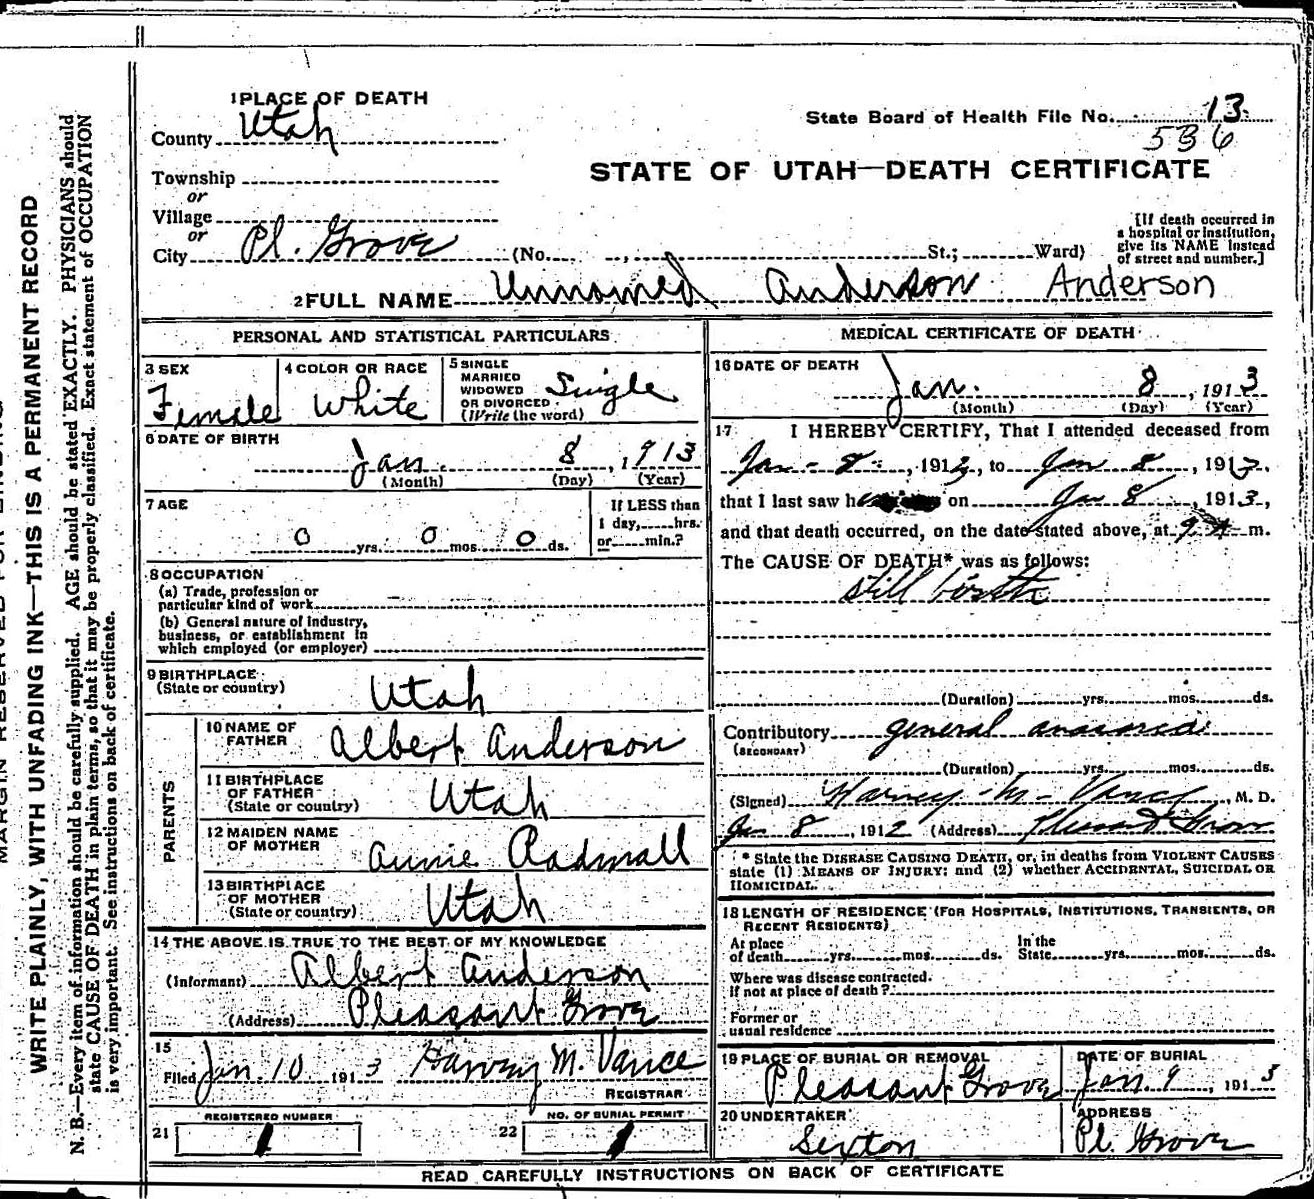 MARGIN RESERVED FOR BINDING
WRITE PLAINLY, WITH UNFADING INK—THIS IS A PERMANENT RECORD
N. B.—Every item of information should be carefully supplied. AGE should be stated EXACTLY. PHYSICIANS should
state CAUSE OF DEATH in plain terms, so that it may be properly classified. Exact statement of OCCUPATION
is very important. See instructions on back of certificate.
1 PLACE OF DEATH
County Utah
Township
or
Village
or
City Pl. Grove (No. , St.; Ward)
State Board of Health File No. 13
536
STATE OF UTAH—DEATH CERTIFICATE
[If death occurred in
a hospital or institution,
give its NAME instead
of street and number.]
2 FULL NAME Unnamed Anderson Anderson
PERSONAL AND STATISTICAL PARTICULARS
3 SEX
Female
4 COLOR OR RACE
White
5 SINGLE
MARRIED
WIDOWED
OR DIVORCED
(Write the word)
Single
6 DATE OF BIRTH
Jan. 8, 1913
(Month) (Day) (Year)
7 AGE
0 yrs. 0 mos. 0 ds.
If LESS than
1 day, hrs.
or min.?
8 OCCUPATION
(a) Trade, profession or
particular kind of work
(b) General nature of industry,
business, or establishment in
which employed (or employer)
9 BIRTHPLACE
(State or country)
Utah
PARENTS
10 NAME OF
FATHER
Albert Anderson
11 BIRTHPLACE
OF FATHER
(State or country)
Utah
12 MAIDEN NAME
OF MOTHER
Annie Radmall
13 BIRTHPLACE
OF MOTHER
(State or country)
Utah
14 THE ABOVE IS TRUE TO THE BEST OF MY KNOWLEDGE
(Informant) Albert Anderson
(Address) Pleasant Grove
15
Filed Jan. 10 1913 Harvey M. Vance
REGISTRAR
REGISTERED NUMBER
21 1
NO. OF BURIAL PERMIT
22 1
MEDICAL CERTIFICATE OF DEATH
16 DATE OF DEATH
Jan. 8, 1913
(Month) (Day) (Year)
17 I HEREBY CERTIFY, That I attended deceased from
Jan - 8, 1913, to Jan 8, 1913,
that I last saw h on Jan 8, 1913,
and that death occurred, on the date stated above, at 9 m.
The CAUSE OF DEATH* was as follows:
still birth
(Duration) yrs. mos. ds.
Contributory general anasarca
(SECONDARY)
(Duration) yrs. mos. ds.
(Signed) Harvey - M - Vance, M. D.
Jan 8, 1912 (Address) Pleasant Grove
* State the DISEASE CAUSING DEATH, or, in deaths from VIOLENT CAUSES
state (1) MEANS OF INJURY; and (2) whether ACCIDENTAL, SUICIDAL OR
HOMICIDAL.
18 LENGTH OF RESIDENCE (FOR HOSPITALS, INSTITUTIONS, TRANSIENTS, OR
RECENT RESIDENTS)
At place
of death yrs. mos. ds.
In the
State yrs. mos. ds.
Where was disease contracted.
If not at place of death?
Former or
usual residence
19 PLACE OF BURIAL OR REMOVAL
Pleasant Grove
DATE OF BURIAL
Jan. 9, 1913
20 UNDERTAKER
Sexton
ADDRESS
Pl. Grove
READ CAREFULLY INSTRUCTIONS ON BACK OF CERTIFICATE